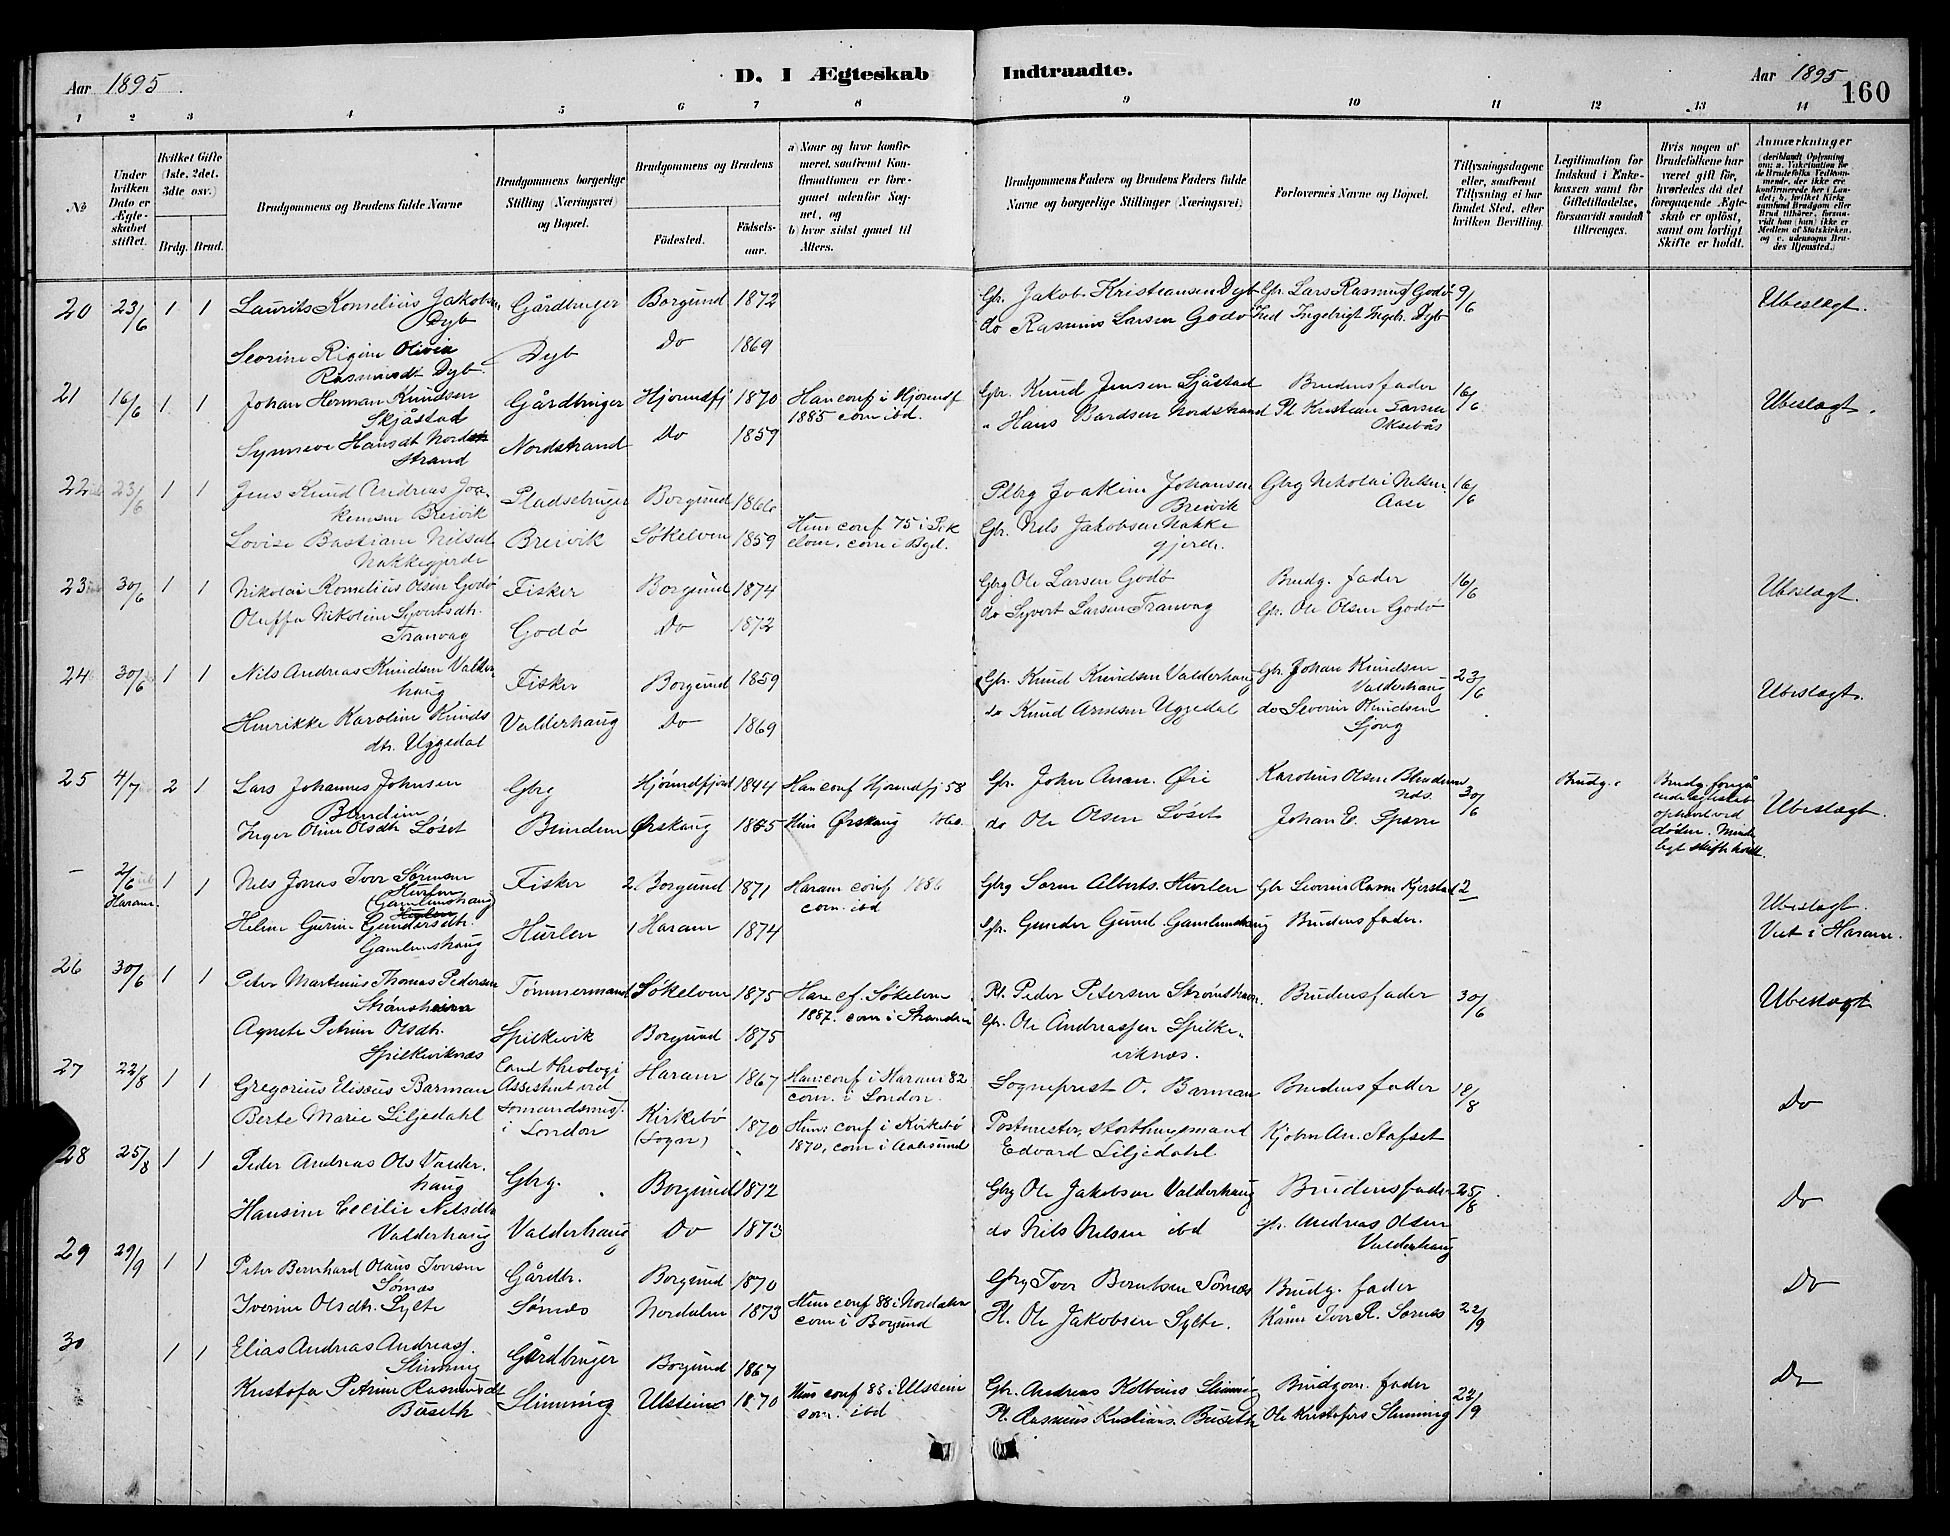 Aar 1895.
D. I Ægteskab
Indtraadte.
Aar 1895
160
1 2 3 4 5 6 7 8 9 10 11 12 13 14
№
Under hvilken Dato er Ægteskabet stiftet.
Hvilket Gifte (1ste, 2det, 3dte osv.)
Brdg. Brud.
Brudgommens og Brudens fulde Navne
Brudgommens borgerlige Stilling (Næringsvei) og Bopæl.
Brudgommens og Brudens
Fødested.
Fødselsaar.
a) Naar og hvor konfirmeret, saafremt Konfirmationen er foregaaet udenfor Sognet, og
b) hvor sidst gaaet til Alters.
Brudgommens Faders og Brudens Faders fulde Navne og borgerlige Stillinger (Næringsvei)
Forlovernes Navne og Bopæl.
Tillysningsdagene eller, saafremt Tillysning ei har fundet Sted, efter hvilken Bevilling.
Legitimation for Indskud i Enkekassen samt for Giftetilladelse, forsaavidt saadan tiltrænges.
Hvis nogen af Brudefolkene har været gift før, hvorledes da det foregaaende Ægteskab er opløst, samt om lovligt Skifte er holdt.
Anmærkninger
20 23/6 1 1 Laurits Kornelius Jakobsen Dyb Gårdbruger Borgund 1872 Gbr. Jakob Kristiansen Dyb Gbr. Lars Rasmus Godø 9/6 Ubeslægt.
Severine Rigine Olivia Rasmusdt Dyb. Dyb Do 1869 do Rasmus Larsen Godø Fred Ingebrigt Ingbr. Dyb
21 16/6 1 1 Johan Herman Knudsen Skjåstad Gårdbruger Hjørundfj 1870 Han conf i Hjørundf 1885 com ibd. Gbr. Knud Jensen Sjåstad Brudens fader 16/6 Ubeslægt.
Synneve Hansdt Nordstrand Nordstrand Do 1859 " Hans Bardsen Nordstrand Pl Kristian Larsen Oksebås
22 23/6 1 1 Jens Knud Andreas Joakimsen Breivik Pladsebruger Borgund 1866 Plbrg Joakim Johansen Breivik Gbrg Nikolai Nilsen Aase 16/6
Lovise Bastiane Nilsdt Nakkegjerde Breivik Søkelven 1859 Hun conf 75 i Gbr. Nils Jakobsen Nakkegjerde
23 30/6 1 1 Nikolai Kornelius Olsen Godø Fisker Borgund 1874 Gbrg Ole Larsen Godø Brudg. fader 16/6 Ubeslægt.
Oluffa Nikoline Syvertsdtr. Tranvag Godø Do 1872 do Syvert Larsen Tranvag Gbr. Ole Olsen Godø
24 30/6 1 1 Nils Andreas Knudsen Valderhaug Fisker Borgund 1859 Gbr. Knud Knudsen Valderhaug Gbr. Johan Knudsen Valderhaug 23/6 Ubeslægt.
Henrikke Karoline Knudsdtr. Uggedal Valderhaug Do 1869 do Knud Arnesen Uggedal do Severin Knudsen
25 4/7 2 1 Lars Johannes Johnsen Gbrg Hjørundfjord 1844 Han conf Hjørundfj 58 Gbr. John Øie Karolius Olsen 30/6 Brudg. Brudg foregående ægteskab ophævet ved døden. skifte holdt. Ubeslægt.
Inger Oline Olsdtr Løset Ørskaug 1855 Hun Ørskaug do Ole Olsen Løset Johan E. Sperre
- 2/6 Haram. 1 1 Nils Jonas Iver Sørensen Hurlen Fisker 2 Borgund 1871 Haram conf 1886 com. ibd Gbrg Søren Alberts. Hurlen Gbr Severin Rasm Kjerstad 2 Ubeslægt.
Helene Gurine Gundersdtr. Gamlemshaug Hurlen 1 Haram 1874 Gbr. Gunder Gund Gamlemshaug Brudens fader. Viet i Haram.
26 30/6 1 1 Peter Martinus Thomas Pedersen Strømsheim Tømmermand Søkelven 1875 Han cf. Søkelven 1887. com i Pl. Peder Petersen Strømsheim. Brudens fader 30/6 Ubeslægt
Agnete Petrine Olsdtr. Spilkeviknæs Spilkevik Borgund 1875 Gbr. Ole Andreassen Spilkeviknæs.
27 22/8 1 1 Gregorius Elisæus Barman Cand theologi Assistent ved Sømandsmis. i London Haram 1867 Han: conf i Haram 82 com. i London. Sogneprest O. Barman Brudens fader 18/8 Do
Berte Marie Liljedahl Kirkebø (Sogn) 1870 Hun: conf i Kirkebø 1870, com i Aalesund Postmester, storthingsmand Edvard Liljedahl. Kjøbm An. Stafset
28 25/8 1 1 Peder Andreas Ols Valderhaug Gbrg. Borgund 1872 Gbrg Ole Jakobsen Valderhaug Brudens fader 25/8 Do
Hansine Cecilie Nilsdtr Valderhaug Valderhaug Do 1873 do Nils Nilsen ibd Gbr. Andreas Olsen Valderhaug
29 29/9 1 1 Peter Bernhard Olaus Iversen Sørnæs Gårdbr. Borgund 1870 Gbrg Iver Berntsen Sørnæs Brudg. fader Do
Iverine Olsdtr. Sylte Sørnæs Nordalen 1873 Hun conf 88 i Nordalen com i Borgund Pl. Ole Jakobsen Sylte. Iver R. Sørnæs 22/9
30 1 1 Elias Andreas Andreass. Slinning Gårdbruger Borgund 1867 Gbr. Andreas Kolbeins Slinning Brudgom. fader 22/9 Do
Kristofa Petrine Rasmusdt Buseth Slinning Ulstein 1870 Hun conf 85 i Ulstein com. ibd Pl. Rasmus Kristians. Buseth Ole Kristofers Slinning